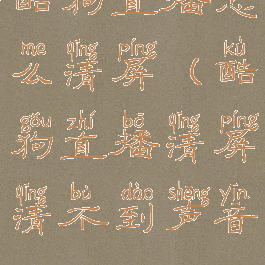 酷狗直播怎
me qīng píng kù
么清屏（酷
gǒu zhí bō qīng píng
狗直播清屏
qīng bù dào shēng yīn
清不到声音